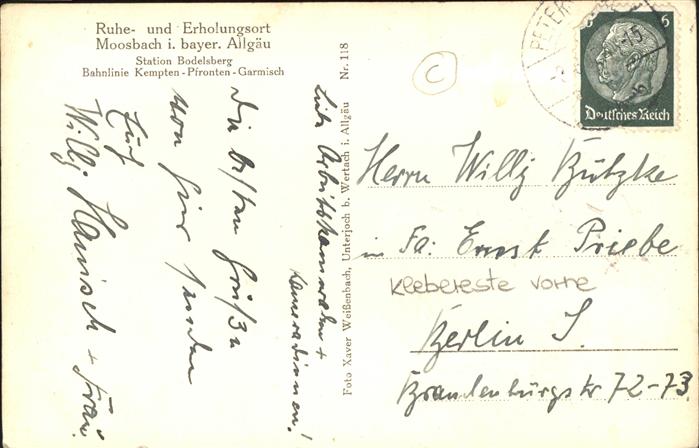 Ruhe- und Erholungsort
Moosbach i. bayer. Allgäu
Station Bodelsberg
Bahnlinie Kempten - Pfronten - Garmisch
Liebe Arbeitskameraden +
Kameradinnen!
Die besten Grüße
von hier senden
Euch
Willy Hanisch + Frau.
Foto Xaver Weißenbach, Unterjoch b. Wertach i. Allgäu Nr. 118
C
PETER
6 6
Deutsches Reich
Herrn Willy Butzke
in Fa: Ernst Priebe
Klebereste vorne
Berlin S.
Brandenburgstr 72-73